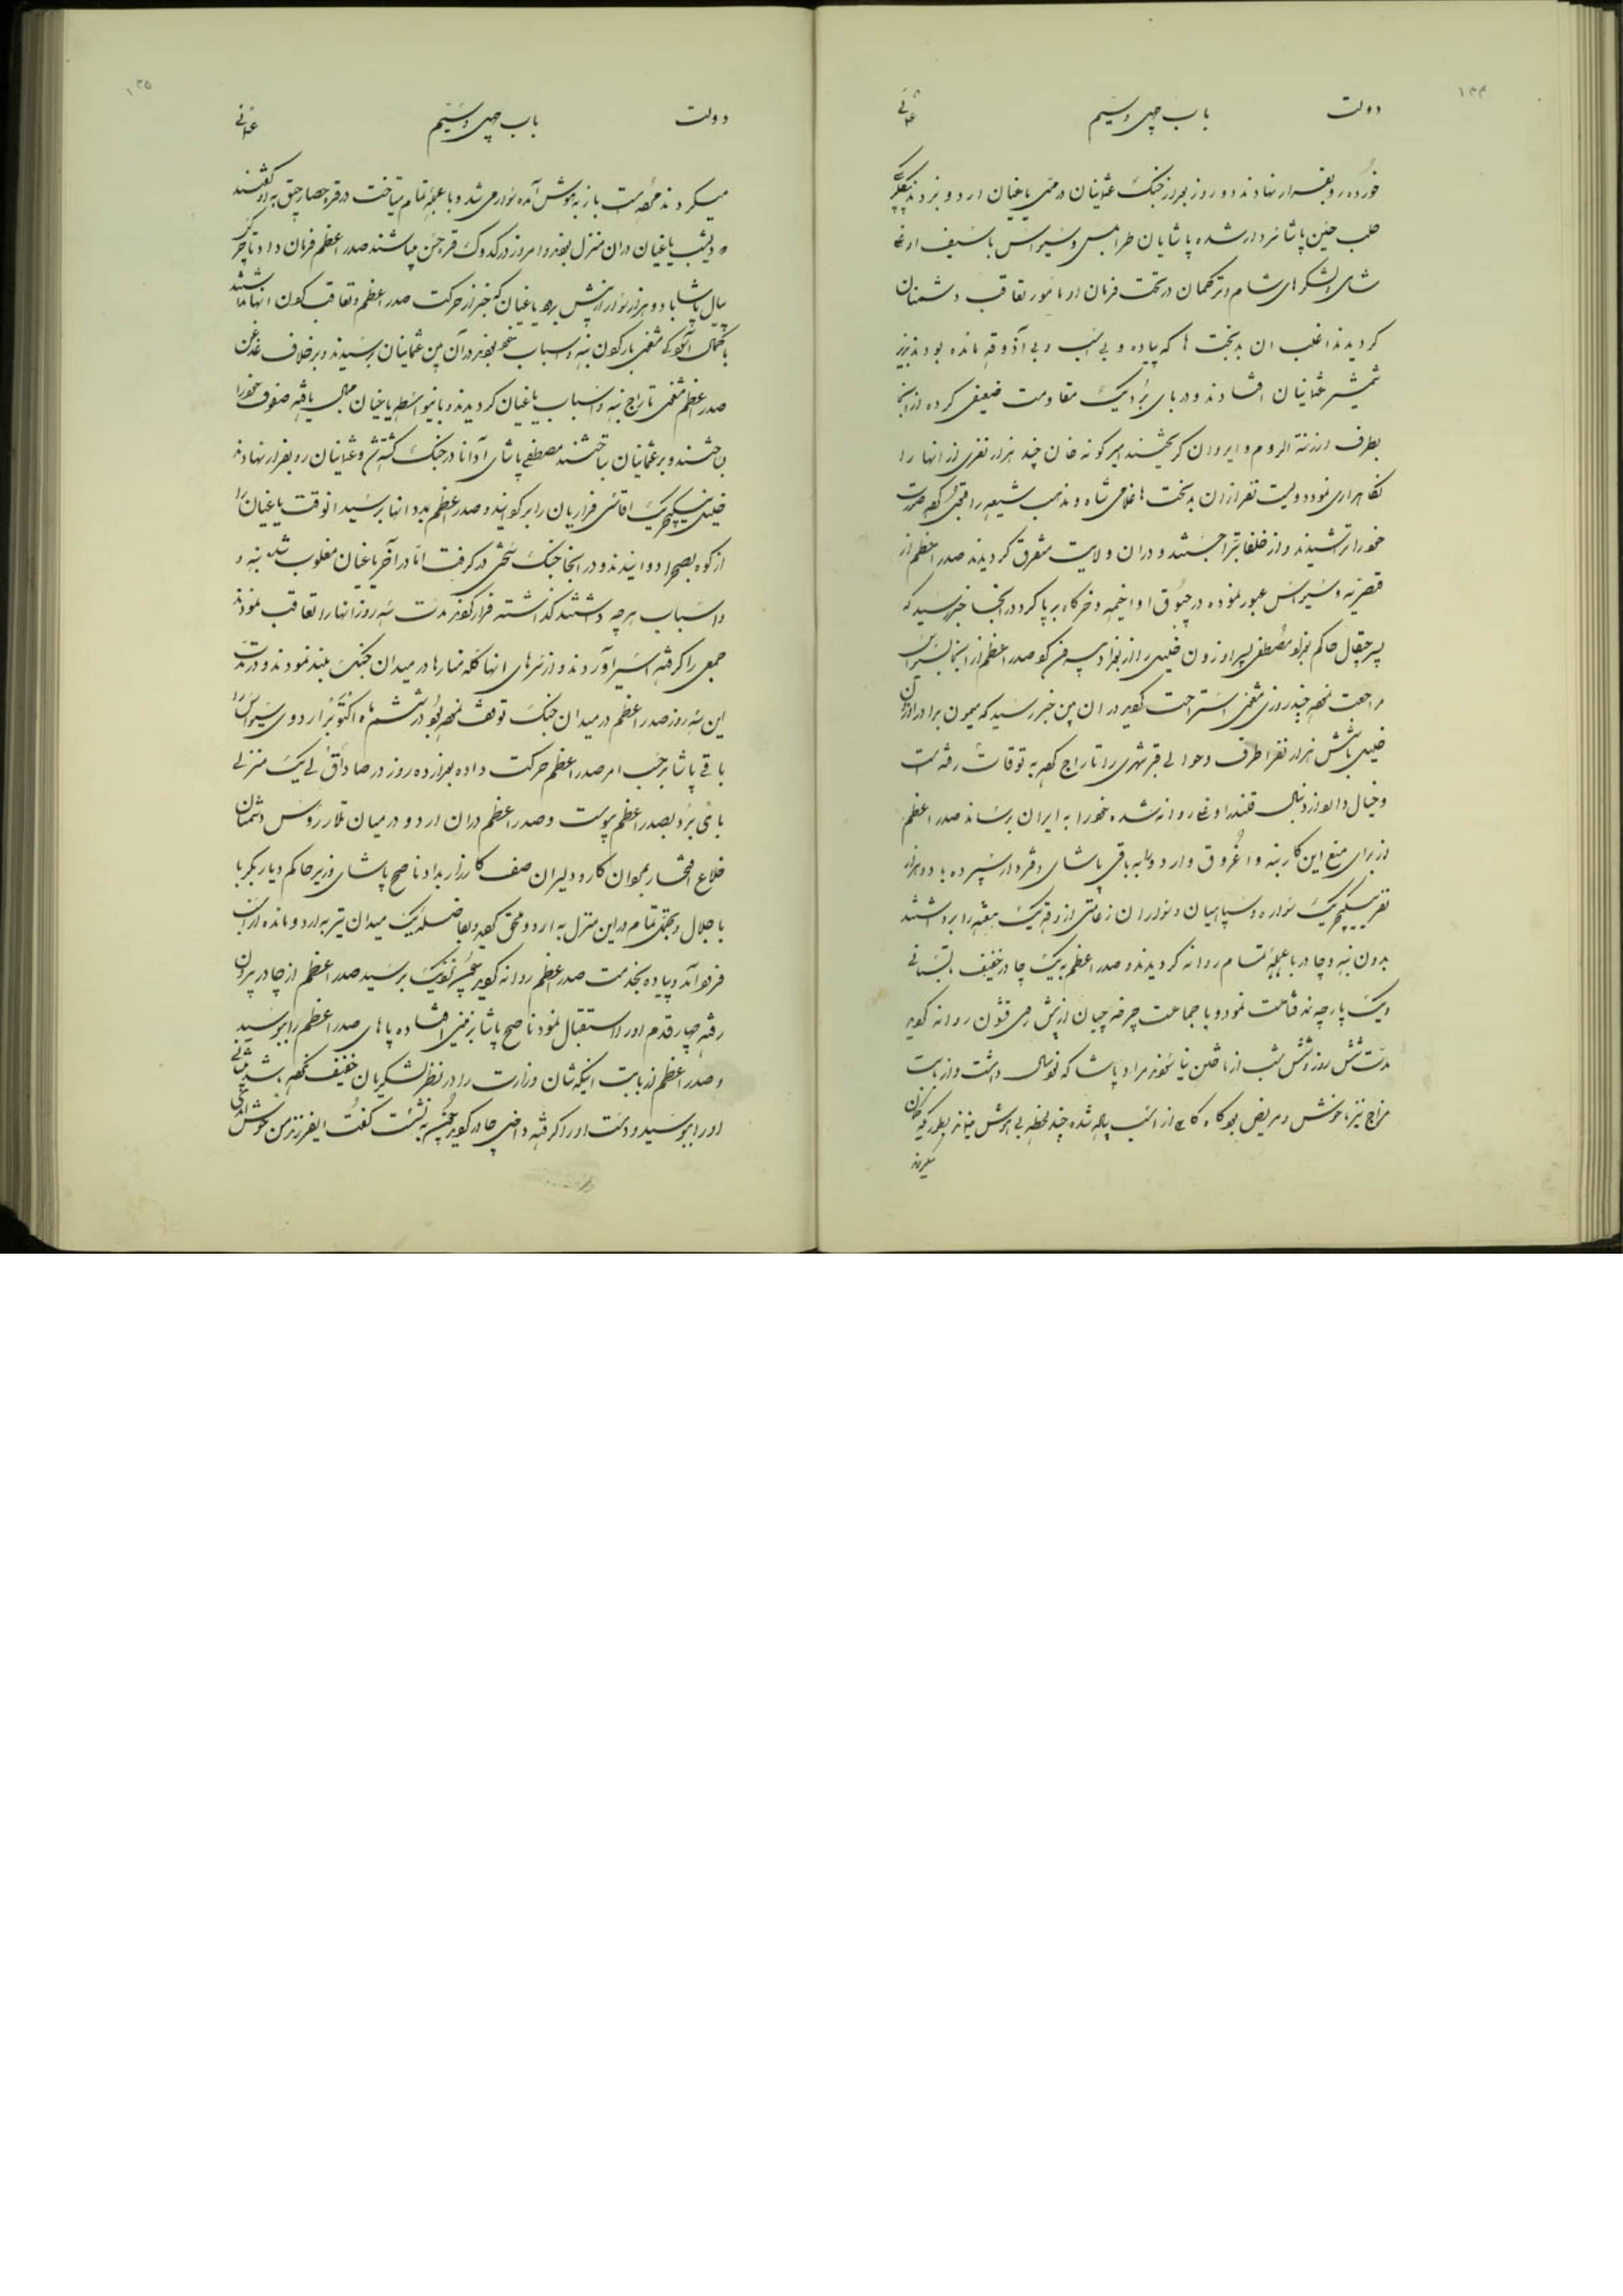 ۱۳۴
دولت باب چهل و سیّم عثمانی
خورده رو بفرار نهادند دو روز بعد از جنک عثمانیان در عقب یاغیان اردو بزدند بیکلربیکی
حلب حسین پاشا سردار شده پاشایان طرابلس و سیواس با سیف اوغلی
شامی و لشکرهای شام و ترکمان در تحت فرمان او مامور تعاقب دشمنان
کردیدند اغلب ان بدبخت ها که پیاده و بی اسب و بی آذوقه مانده بودند بزیر
شمشیر عثمانیان افتادند و در بای بُرد یک مقاومت ضعیفی کرده از انجا
بطرف ارزنة الروم و ایروان کریختند امیر کونه خان چند هزار نفری از انها را
نکاهداری نمود دویست نفر از ان بدبخت ها غلامی شاه و مذهب شیعه را قبول کرده صورت
خود را تراشیدند و از خلفا تبرّا جستند و در ان ولایت متفرق کردیدند صدر اعظم از
قیصریّه و سیواس عبور نموده در چبوق اوا خیمه و خرکاه برپا کرد در انجا خبر رسید که
پسر چقال حاکم بغداد مصطفی پسر اوزون خلیل را از بغداد پس فن کرد صدر اعظم از انجا بسیواس
مراجعت نموده چند روزی مشغول استراحت کردید در ان بین خبر رسید که میمون برادر اوزون
خلیل با شش هزار نفر اطراف و حوالی قیرشهری را تاراج کرده به توقات رفته است
و خیال دارد از دنبال قلندر اوغلی روانه شده خود را به ایران برساند صدر اعظم
از برای منع این کار بنه و اغروق و اردو را به باقی پاشای دفتردار سپرده با دو هزار
نفر ینیکچریک سواره و سپاهیان و سواران زعامتی آذوقه یک هفته را برداشتند
بدون بنه و چادر با عجلهٔ تمام روانه کردیدند و صدر اعظم به یک چادر خفیف تابستانی
و یک پارچه نمد قناعت نمود و با جماعت چرخه چیان از پیش روی قشون روانه کردید
مدّت شش روز و شش شب از تاختن نیاسودند مراد پاشا که نود سال داشت و از بابت
مزاج نیز ناخوش و مریض بود کاه کاهی از اسب پیاده شده چند لحظه بی هوش میماند بطوریکه کمان
میکردند
۱۳۵
دولت باب چهل و سیّم عثمانی
میکردند مرده است باز به هوش آمده سوار می شد و با عجلهٔ تمام میتاخت در قره حصار چبق به او کفتند
دیشب یاغیان در ان منزل بودند و امروز در کدوک قره حسن میباشند صدر اعظم فرمان داد تا
پیاله پاشا با دو هزار سوار از پیش برود یاغیان که خبر از حرکت صدر اعظم و تعاقب کردن انها داشتند
با کمال آسودکی مشغول بار کردن بنه و اسباب خود بودند در آن بین عثمانیان برسیدند و بر خلاف غدغن
صدر اعظم مشغول تاراج بنه و اسباب یاغیان کردیدند و باین واسطه یاغیان مجال یافته صفوف خود را
بساختند و بر عثمانیان بتاختند مصطفی پاشای آدانا در جنک کشته شد و عثمانیان رو بفرار نهادند
خلیل ینیکچریک اقاسی فراریان را برکردانید و صدر اعظم بمدد انها برسید انوقت یاغیان را
از کوه بصحرا دوانیدند و در انجا جنک سختی در کرفت امّا در آخر یاغیان مغلوب شده بنه و
و اسباب هرچه داشتند کذاشته فرار کردند مدّت سه روز انها را تعاقب نمودند
جمعی را کرفته اسیر آوردند و از سرهای انها کله منارها در میدان جنک بلند نمودند و در مدّت
این سه روز صدر اعظم در میدان جنک توقف نموده بود در ششم ماه اکتوبر اردوی سیواس را
باقی پاشا بر حسب امر صدر اعظم حرکت داده بعد از ده روز در صاداق لی یک منزلی
بای بُرد بصدر اعظم پیوست و صدر اعظم در ان اردو در میان تلار رؤس دشمنان
خلاع افتخار بجوانان کار و دلیران صف کارزار بداد ناصح پاشای وزیر حاکم دیاربکر با
با جلال و تجمّل تمام در این منزل به اردو ملحق کردید و بفاصله یک میدان تیر به اردو مانده از اسب
فرود آمد و پیاده بخدمت صدر اعظم روانه کردید چون نزدیک برسید صدر اعظم از چادر بیرون
رفته چهار قدم او را استقبال نمود ناصح پاشا بزمین افتاده پاهای صدر اعظم را ببوسید
و صدر اعظم از بابت اینکه شان وزارت را در نظر لشکریان خفیف نکرده باشد پیشانی
او را ببوسید و دست او را کرفته داخل چادر کردید چون بنشست کفت ایفرزند من خوش آمدی